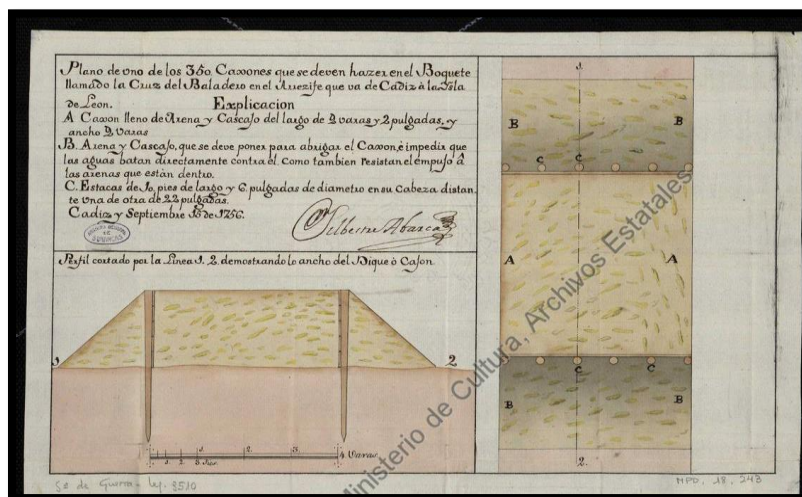 Plano de vno de los 350 Caxones que se deven hazer en el Boquete
llamado la Cruz del Baladero en el Arrezife que va de Cadiz à la Isla
de Leon.
Explicacion
A Caxon lleno de Arena y Cascajo del largo de 2 varas y 2 pulgadas, y
ancho 2 varas
B. Arena y Cascajo, que se deve poner para abrigar el Caxon, è impedir que
las aguas batan directamente contra el. Como tambien resistan el empujo â
las arenas que están dentro.
C. Estacas de 10, pies de largo y 6, pulgadas de diametro en su Cabeza distan,
te vna de otra de 22 pulgadas.
Cadiz y Septiembre 15 de 1756.
Silbestre Abarca
Perfil cortado por la Linea 1. 2. demostrando lo ancho del Dique ò Cajon
1
2
1. 2. 3 Pies.
1.
2.
3.
4 Varas
1.
B
B
C
C
A
A
C
C
B
B
2.
Ministerio de Cultura, Archivos Estatales
Sº de Guerra - leg. 3510
MPD, 18, 243